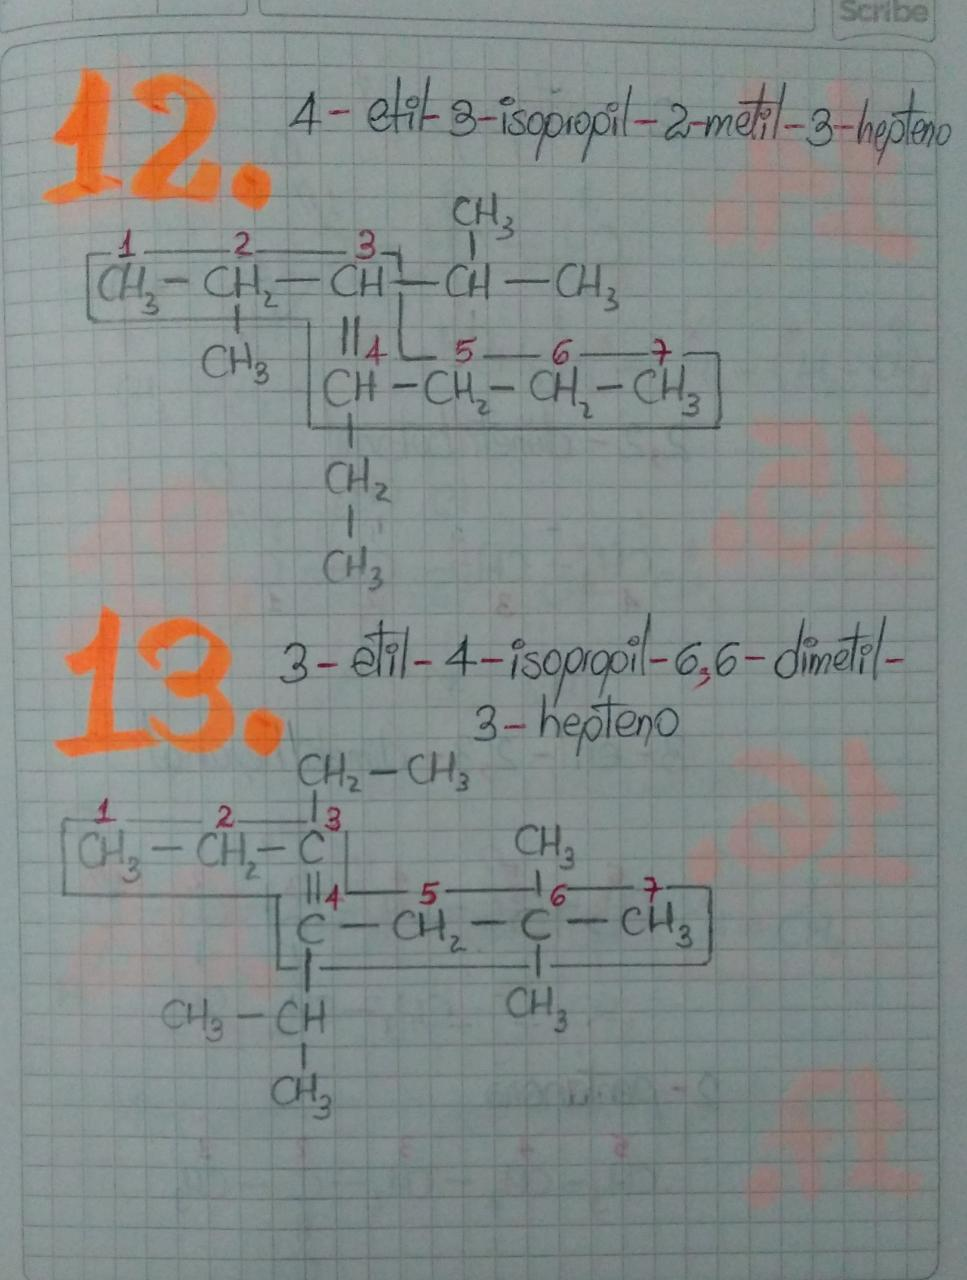 Scribe
12. 4-etil-3-isopropil-2-metil-3-hepteno
CH₃
1 2 3
CH₃ - CH₂ - CH - CH - CH₃
|| 4 5 6 7
CH₃ CH - CH₂ - CH₂ - CH₃
CH₂
CH₃
13. 3-etil-4-isopropil-6,6-dimetil-
3-hepteno
CH₂ - CH₃
1 2 3
CH₃ - CH₂ - C CH₃
|| 4 5 6 7
C - CH₂ - C - CH₃
CH₃ - CH CH₃
CH₃